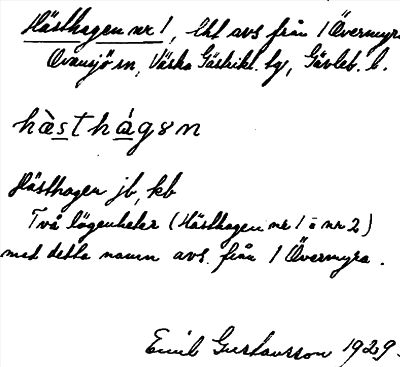 Hästhagen nr 1, lht avs från 1 Övermyra
Ovansjö sn, Västra Gästrikl. tg, Gävleb. l.
hàsthágen
Hästhagen jb, kb
Två lägenheter (Hästhagen nr 1 o nr 2)
med detta namn avs. från 1 Övermyra.
Emil Gustavsson 1929.